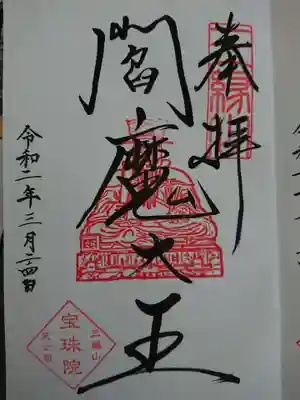 奉拝
閻魔大王
令和二年三月二四日
三縁山
宝珠院